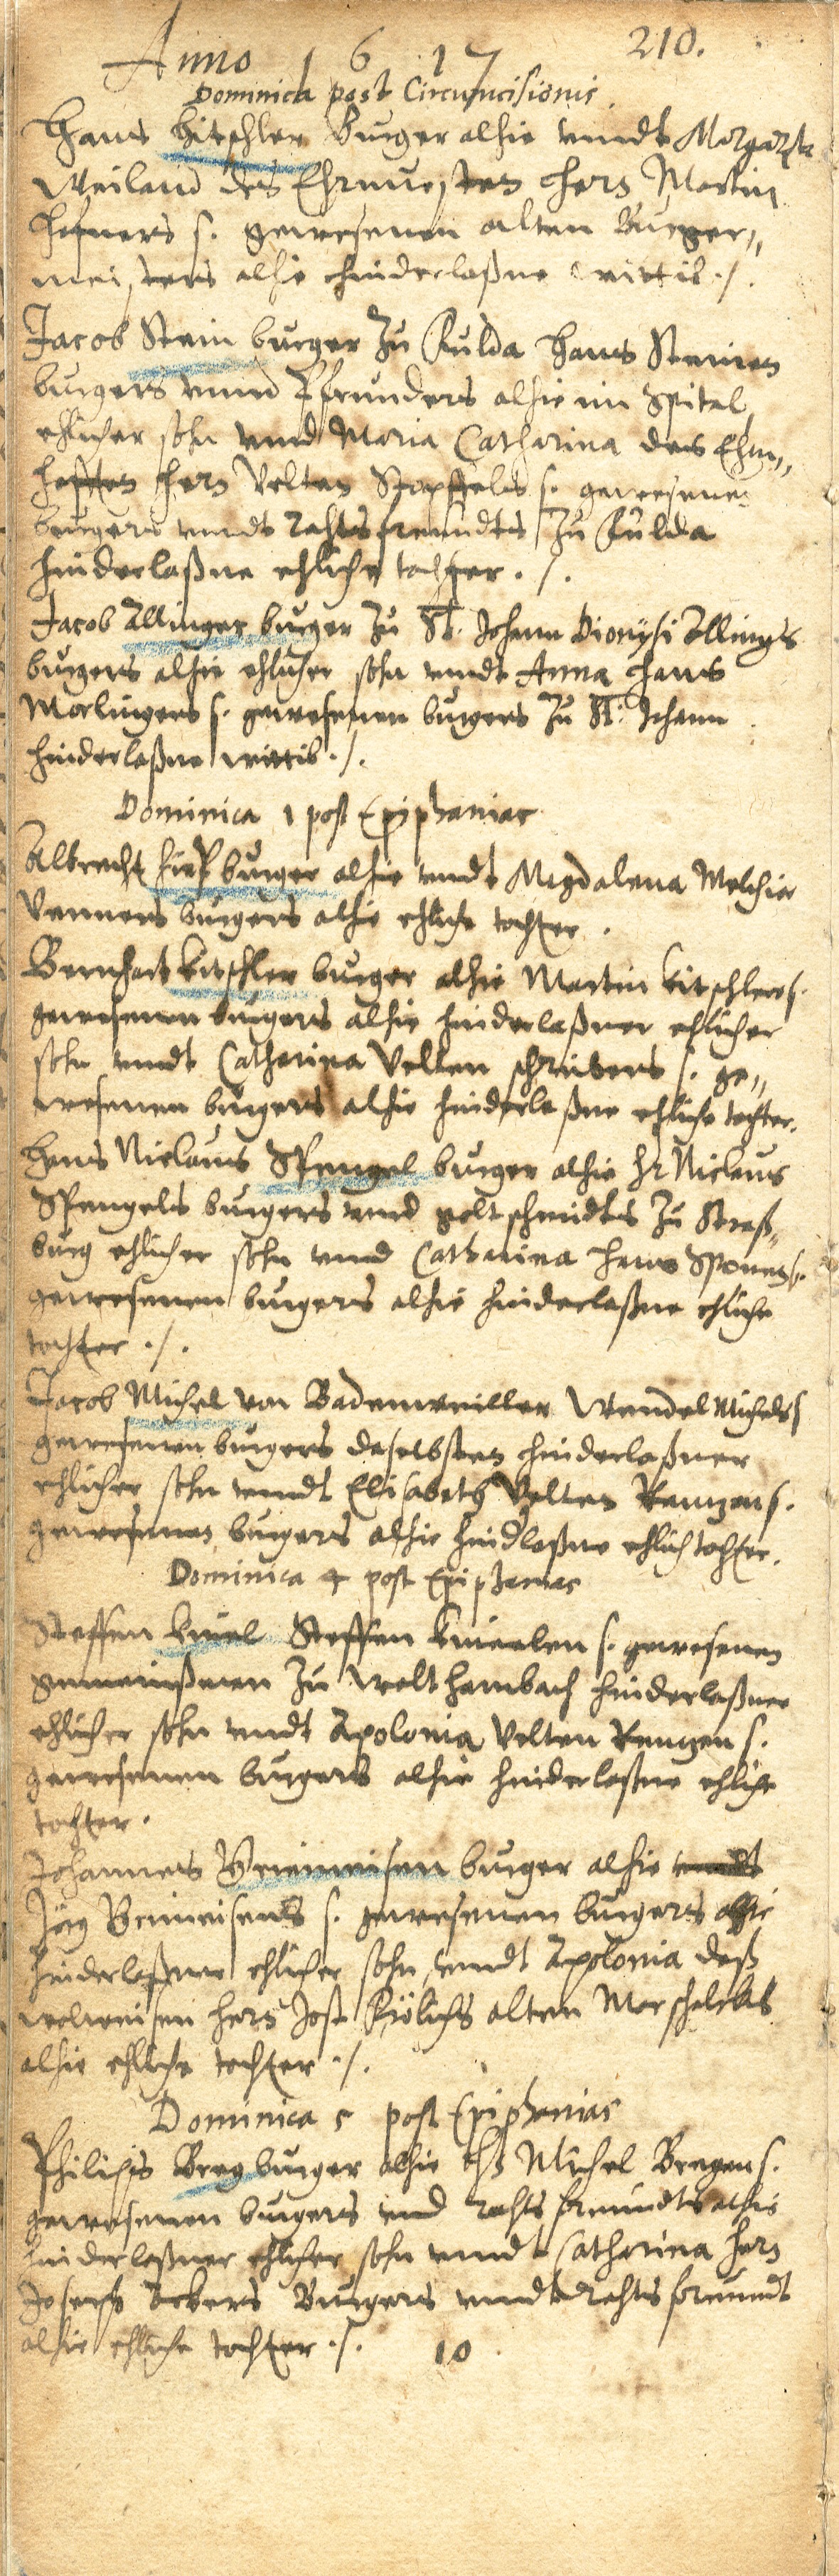 210.
Anno 1617
Dominica post Circumcisionis.
Hans Kitschler Burger alhie vnndt Margareta
Weiland des Ehrnuesten hern Martin
Hefners s. gewesenen alten Burger„
meisters alhie hinderlaßne wittib ./.
Jacob Stein burger zu Fulda Hans Steinen
burgers vnnd Pfrunders alhie im Spital
ehlicher sohn vnnd Maria Catharina des Ehrn„
hafften hern Velten Stopffels s. gewesenen
burgers vnndt Rahtsfreundts zu Fulda
hinderlaßne ehliche tochter ./.
Jacob Zllinger burger zu St. Johann Dionysi Zllingers
burgers alhie ehlicher sohn vnndt Anna Hans
Morlingers s. gewesenen burgers zu St. Johann
hinderlaßne wittib ./.
Dominica 1 post Epiphanias
Albrecht burger alhie vnndt Magdalena Melchior
Venners burgers alhie ehliche tochter.
Bernhart Kitschler burger alhie Martin Kitschlers s.
gewesenen burgers alhie hinderlaßner ehlicher
sohn vnndt Catharina Velten Schreibers s. ge„
wesenen burgers alhie hinderlaßne ehliche tochter.
Hans Niclaus Spengel burger alhie Hr Niclaus
Spengels burgers vnnd goltschmidts zu Straß„
burg ehlicher sohn vnnd Catharina Hans Sponers s.
gewesenen burgers alhie hinderlaßne ehliche
tochter ./.
Jacob Michel von Badenweiller Wendel Michels s
gewesenen burgers daselbsten hinderlaßner
ehlicher sohn vnndt Elisabeth Velten Kentzen s.
gewesenen burgers alhie hindlaßne ehlich tochter.
Dominica 4 post Epiphanias
Steffen Kniel Steffen Knielen s. gewesenen
gemeinßman zu Welthambach hinderlaßner
ehlicher sohn vnndt Apolonia Velten Kentzen s.
gewesenen burgers alhie hinderlaßne ehliche
tochter.
Johannes Beineisen burger alhie vnndt
Jörg Beineisens s. gewesenen burgers alhie
hinderlaßner ehlicher sohn, vnndt Apolonia deß
wolweisen hern Jost Frölichs alten Marschalcks
alhie ehliche tochter ./.
Dominica 5 post Epiphanias
Philips Breg burger alhie Hr Michel Bregen s.
gewesenen burgers vnd rahtsfreundts alhie
hinderlaßner ehlicher sohn vnndt Catharina hern
Josephs Ackers Burgers vnndt Rahtsfreundt
alhie ehliche tochter ./. 10